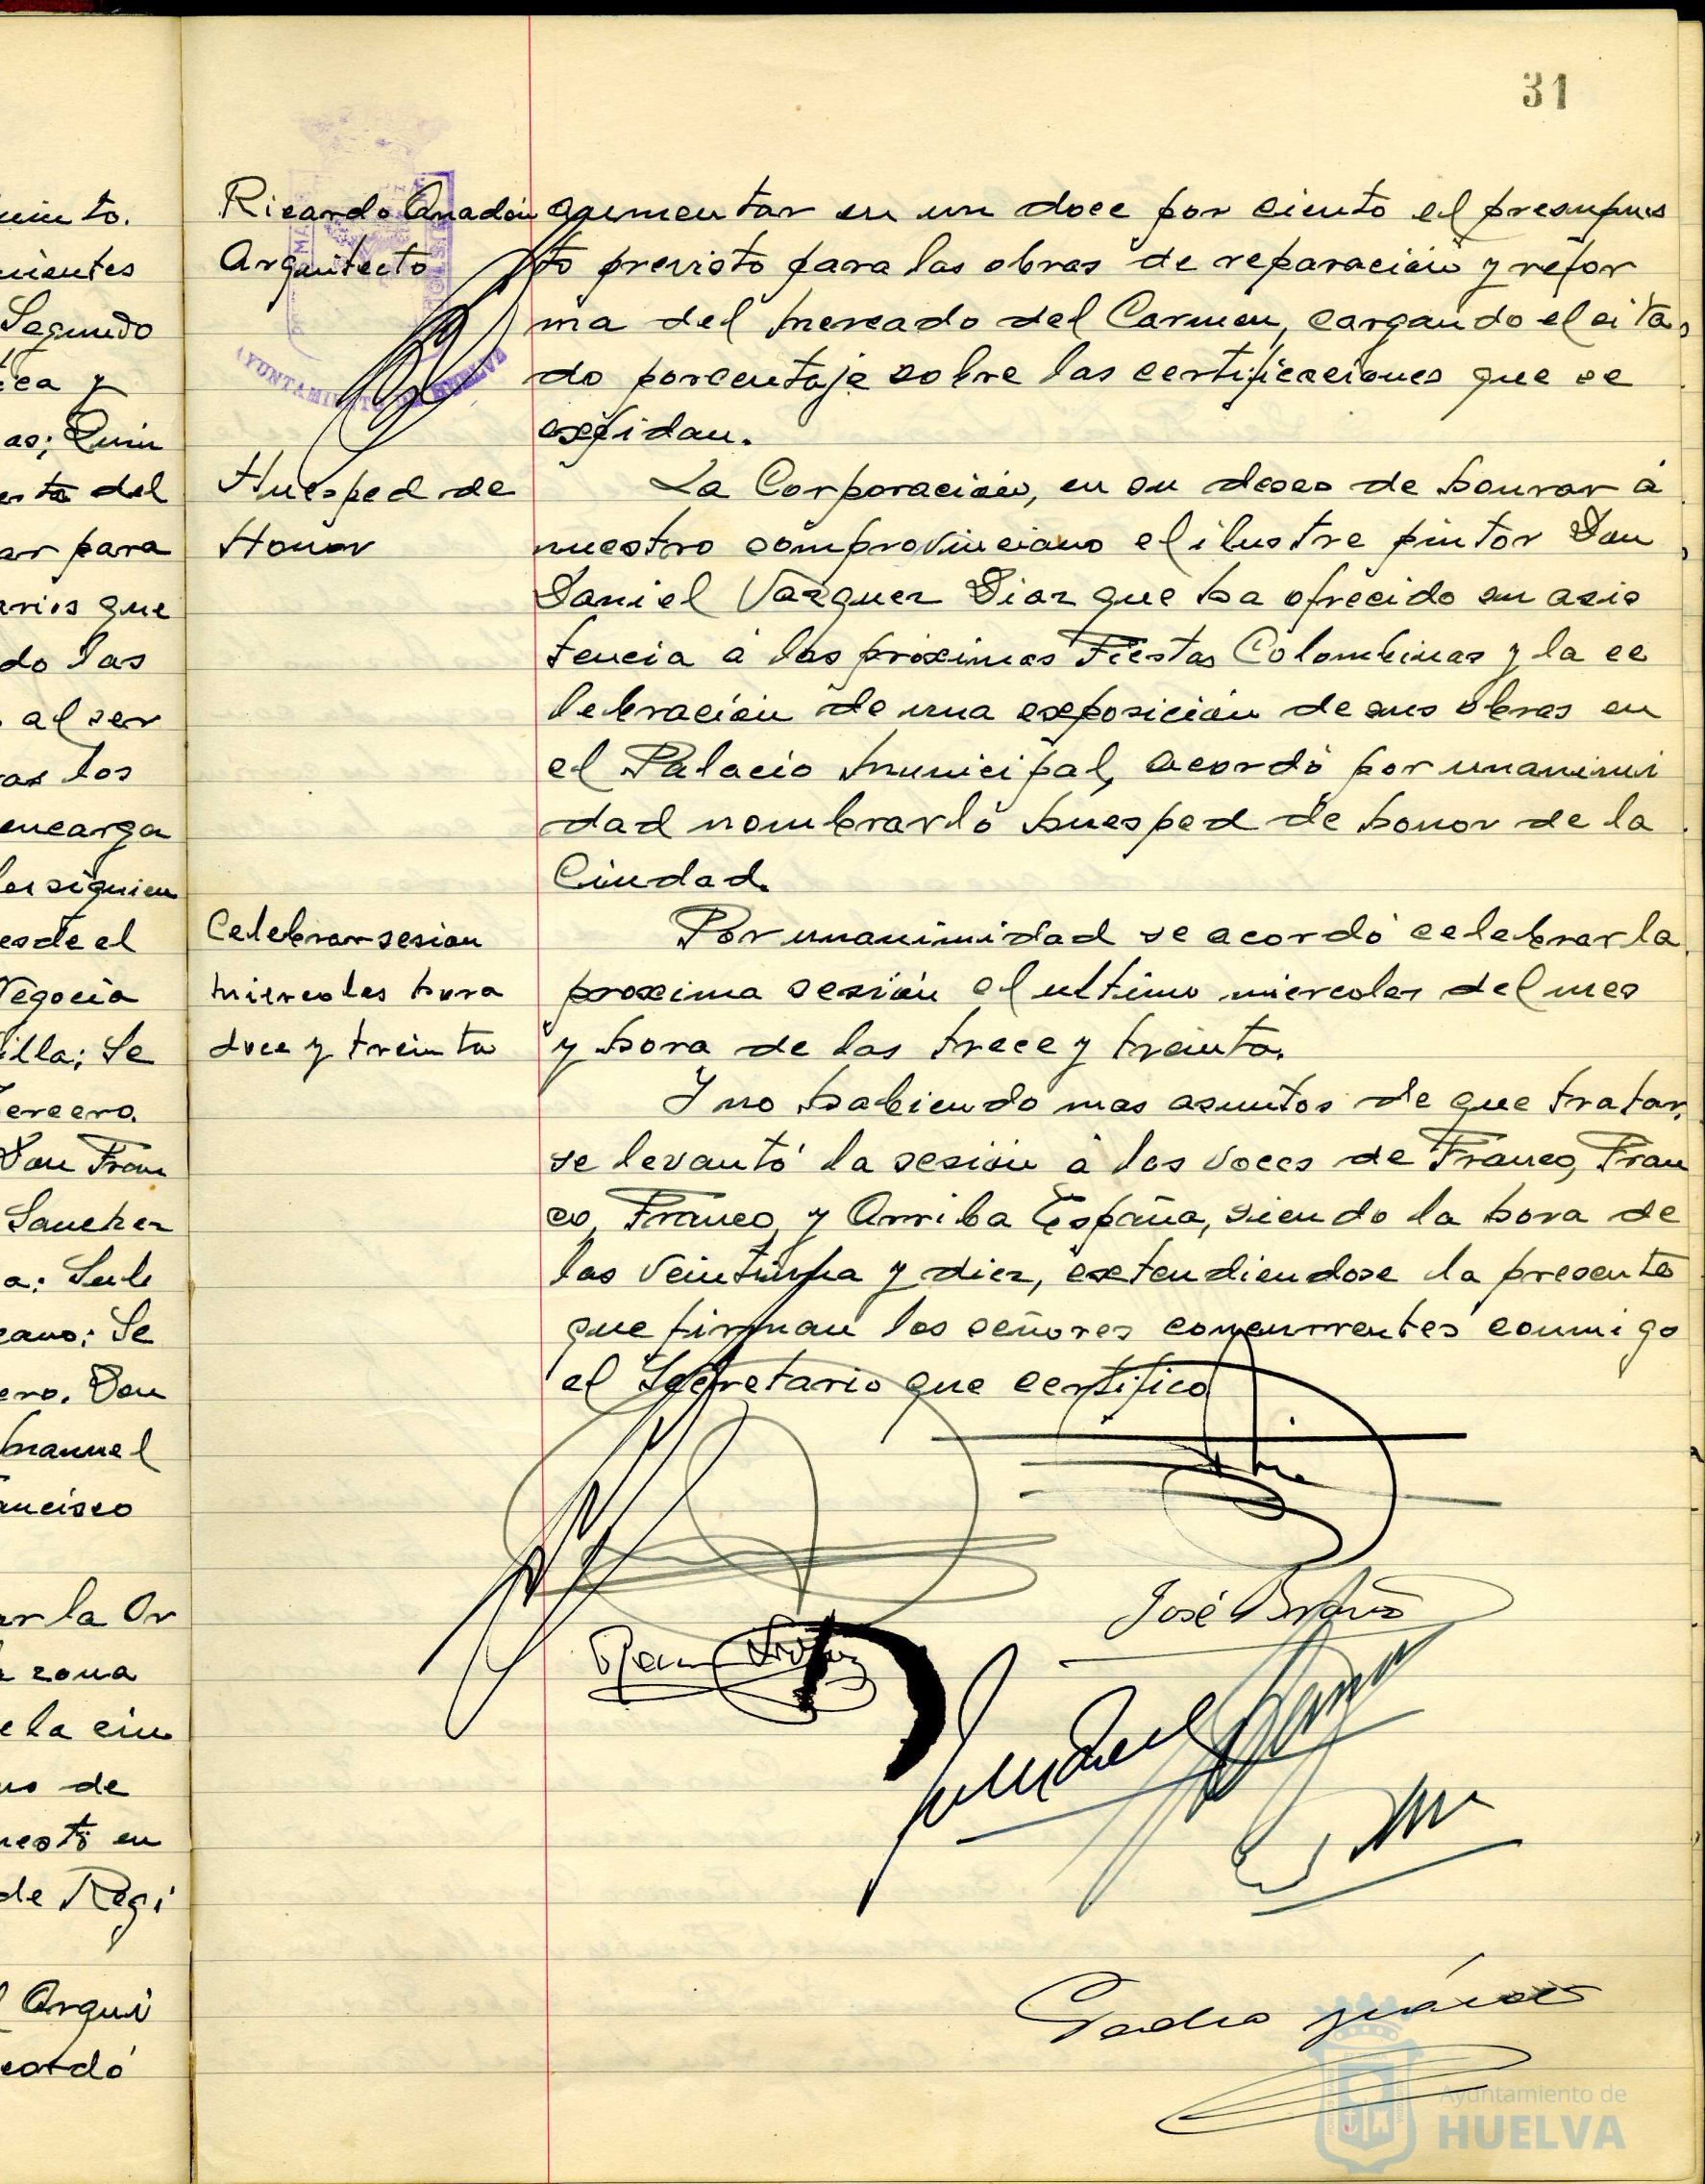 31
uinto.
nientes
Segundo
tea y
as; Quin
erta del
ar para
arios que
do las
al ser
ras los
encarga
les siguien
esde el
Negocia
illa; Se
ercero.
Don Fran
Sanchez
a; Sub
cano; Se
ero. Don
Manuel
ancisco
ar la Or
a zona
e la ciu
us de
uesto en
de Regi
Arqui
cordó
Ricardo Anadón
Arquitecto
AYUNTAMIENTO DE HUELVA
Huesped de
Honor
Celebrar sesion
miercoles hora
doce y treinta
aumentar en un doce por ciento el presupues
to previsto para las obras de reparación y refor
ma del Mercado del Carmen, cargando el cita
do porcentaje sobre las certificaciones que se
expidan.
La Corporación, en su deseo de honrar á
nuestro comprovinciano el ilustre pintor Don
Daniel Vazquez Diaz que ha ofrecido su asis
tencia á las próximas Fiestas Colombinas y la ce
lebración de una exposición de sus obras en
el Palacio Municipal, acordó por unanimi
dad nombrarló huesped de honor de la
Ciudad.
Por unanimidad se acordó celebrar la
proxima sesión el ultimo miercoles del mes
y hora de las trece y treinta.
Y no habiendo mas asuntos de que tratar,
se levantó la sesión á los voces de Franco, Fran
co, Franco, y Arriba España, siendo la hora de
las veintiuna y diez, extendiendose la presente
que firman los señores concurrentes conmigo
el Secretario que certifico
José
Pedro
Ayuntamiento de
HUELVA